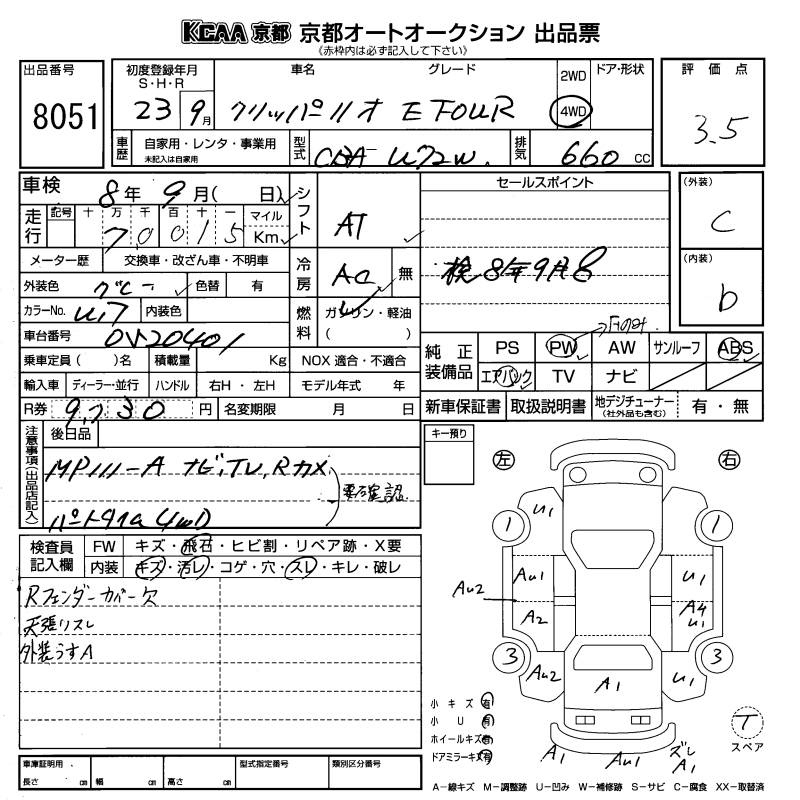 KCAA 京都 京都オートオークション 出品票
《赤枠内は必ず記入して下さい》
出品番号
8051
初度登録年月
S・H・R
23 9月
車名
グレード
クリッパーリオ E TOUR
2WD
4WD
ドア・形状
評価点
3.5
車歴
自家用・レンタ・事業用
未記入は自家用
型式
CBA U72W
排気
660 cc
車検
8年 9月( 日)
シフト
AT
走行
記号 十 万 千 百 十 一 マイル
70015 Km
メーター歴 交換車・改ざん車・不明車
冷房
AC 無
外装色 グレー 色替 有
カラーNo. 内装色
燃料
ガソリン・軽油
( )
車台番号
乗車定員( )名 積載量 Kg NOX 適合・不適合
輸入車 ディーラー・並行 ハンドル 右H・左H モデル年式 年
R券 9,730 円 名変期限 月 日
セールスポイント
検8年9月8
(外装)
C
(内装)
b
純正装備品
PS PW AW サンルーフ ABS
エアバック TV ナビ
新車保証書 取扱説明書 地デジチューナー
(社外品も含む)
有・無
注意事項(出品店記入)
後日品
MP111-A ナビ,TV,Rカメ
要確認
パートタイム4WD
キー預り
左 右
検査員記入欄
FW キズ・飛石・ヒビ割・リペア跡・X要
内装 キズ・汚レ・コゲ・穴・スレ・キレ・破レ
Rフェンダーカバー欠
天張リスレ
外装うすA
U1
1 1
AU2
AU1
A2
U1
A4
U1
3 3
AU2
A1
U1
小キズ 有
小U 有
ホイールキズ 有
ドアミラーキズ 有
A1
AU1
ズレ
A1
T
スペア
車庫証明用.
長さ cm 幅 cm 高さ cm
型式指定番号
類別区分番号
A-線キズ M-調整跡 U-凹み W-補修跡 S-サビ C-腐食 XX-取替済